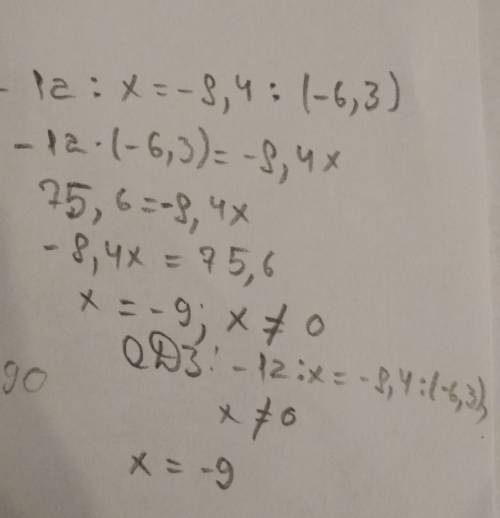 - 12 : x = -8,4 : (-6,3)
- 12 · (-6,3) = -8,4x
75,6 = -8,4x
- 8,4x = 75,6
x = -9; x ≠ 0
ОДЗ: -12 : x = -8,4 : (-6,3),
90
x ≠ 0
x = -9